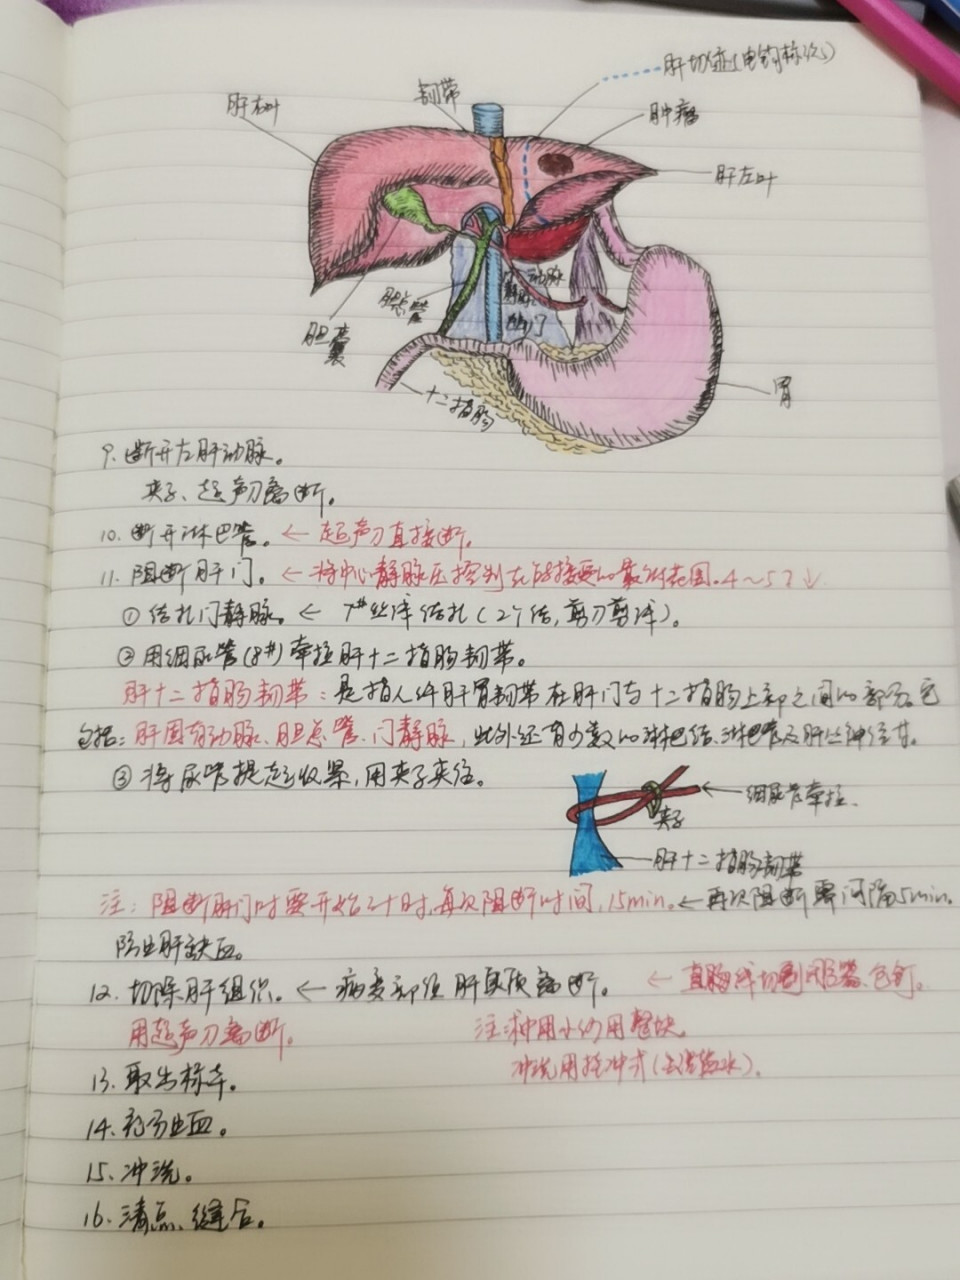 肝切迹(电钩标记)
韧带
肝右叶
肿瘤
肝左叶
动脉
静脉
胆总管
胆囊
胃
十二指肠
9. 断开左肝动脉。
夹子、超声刀离断。
10. 断开淋巴管。← 超声刀直接断。
11. 阻断肝门。← 将中心静脉压控制在
① 结扎门静脉。← 7#丝线结扎(2个结,剪刀剪线)。
② 用细尿管(8#)牵拉肝十二指肠韧带。
肝十二指肠韧带:是指人体肝胃韧带在肝门与十二指肠上部之间的部分,它
包括:肝固有动脉、胆总管、门静脉,此外还有少数的淋巴结、淋巴管及肝丛神经等。
③ 将尿管提起收紧,用夹子夹住。
细尿管牵拉.
夹子
肝十二指肠韧带
注:阻断肝门时要开始计时,每次阻断时间,15min.←再次阻断需间隔5min.
防止肝缺血。
12. 切除肝组织。← 病变部位肝实质离断。 ← 直线切割闭合器、仓钉。
用超声刀离断。 注:
冲洗用
13. 取出标本。
14. 彻底止血。
15. 冲洗。
16. 清点、缝合。